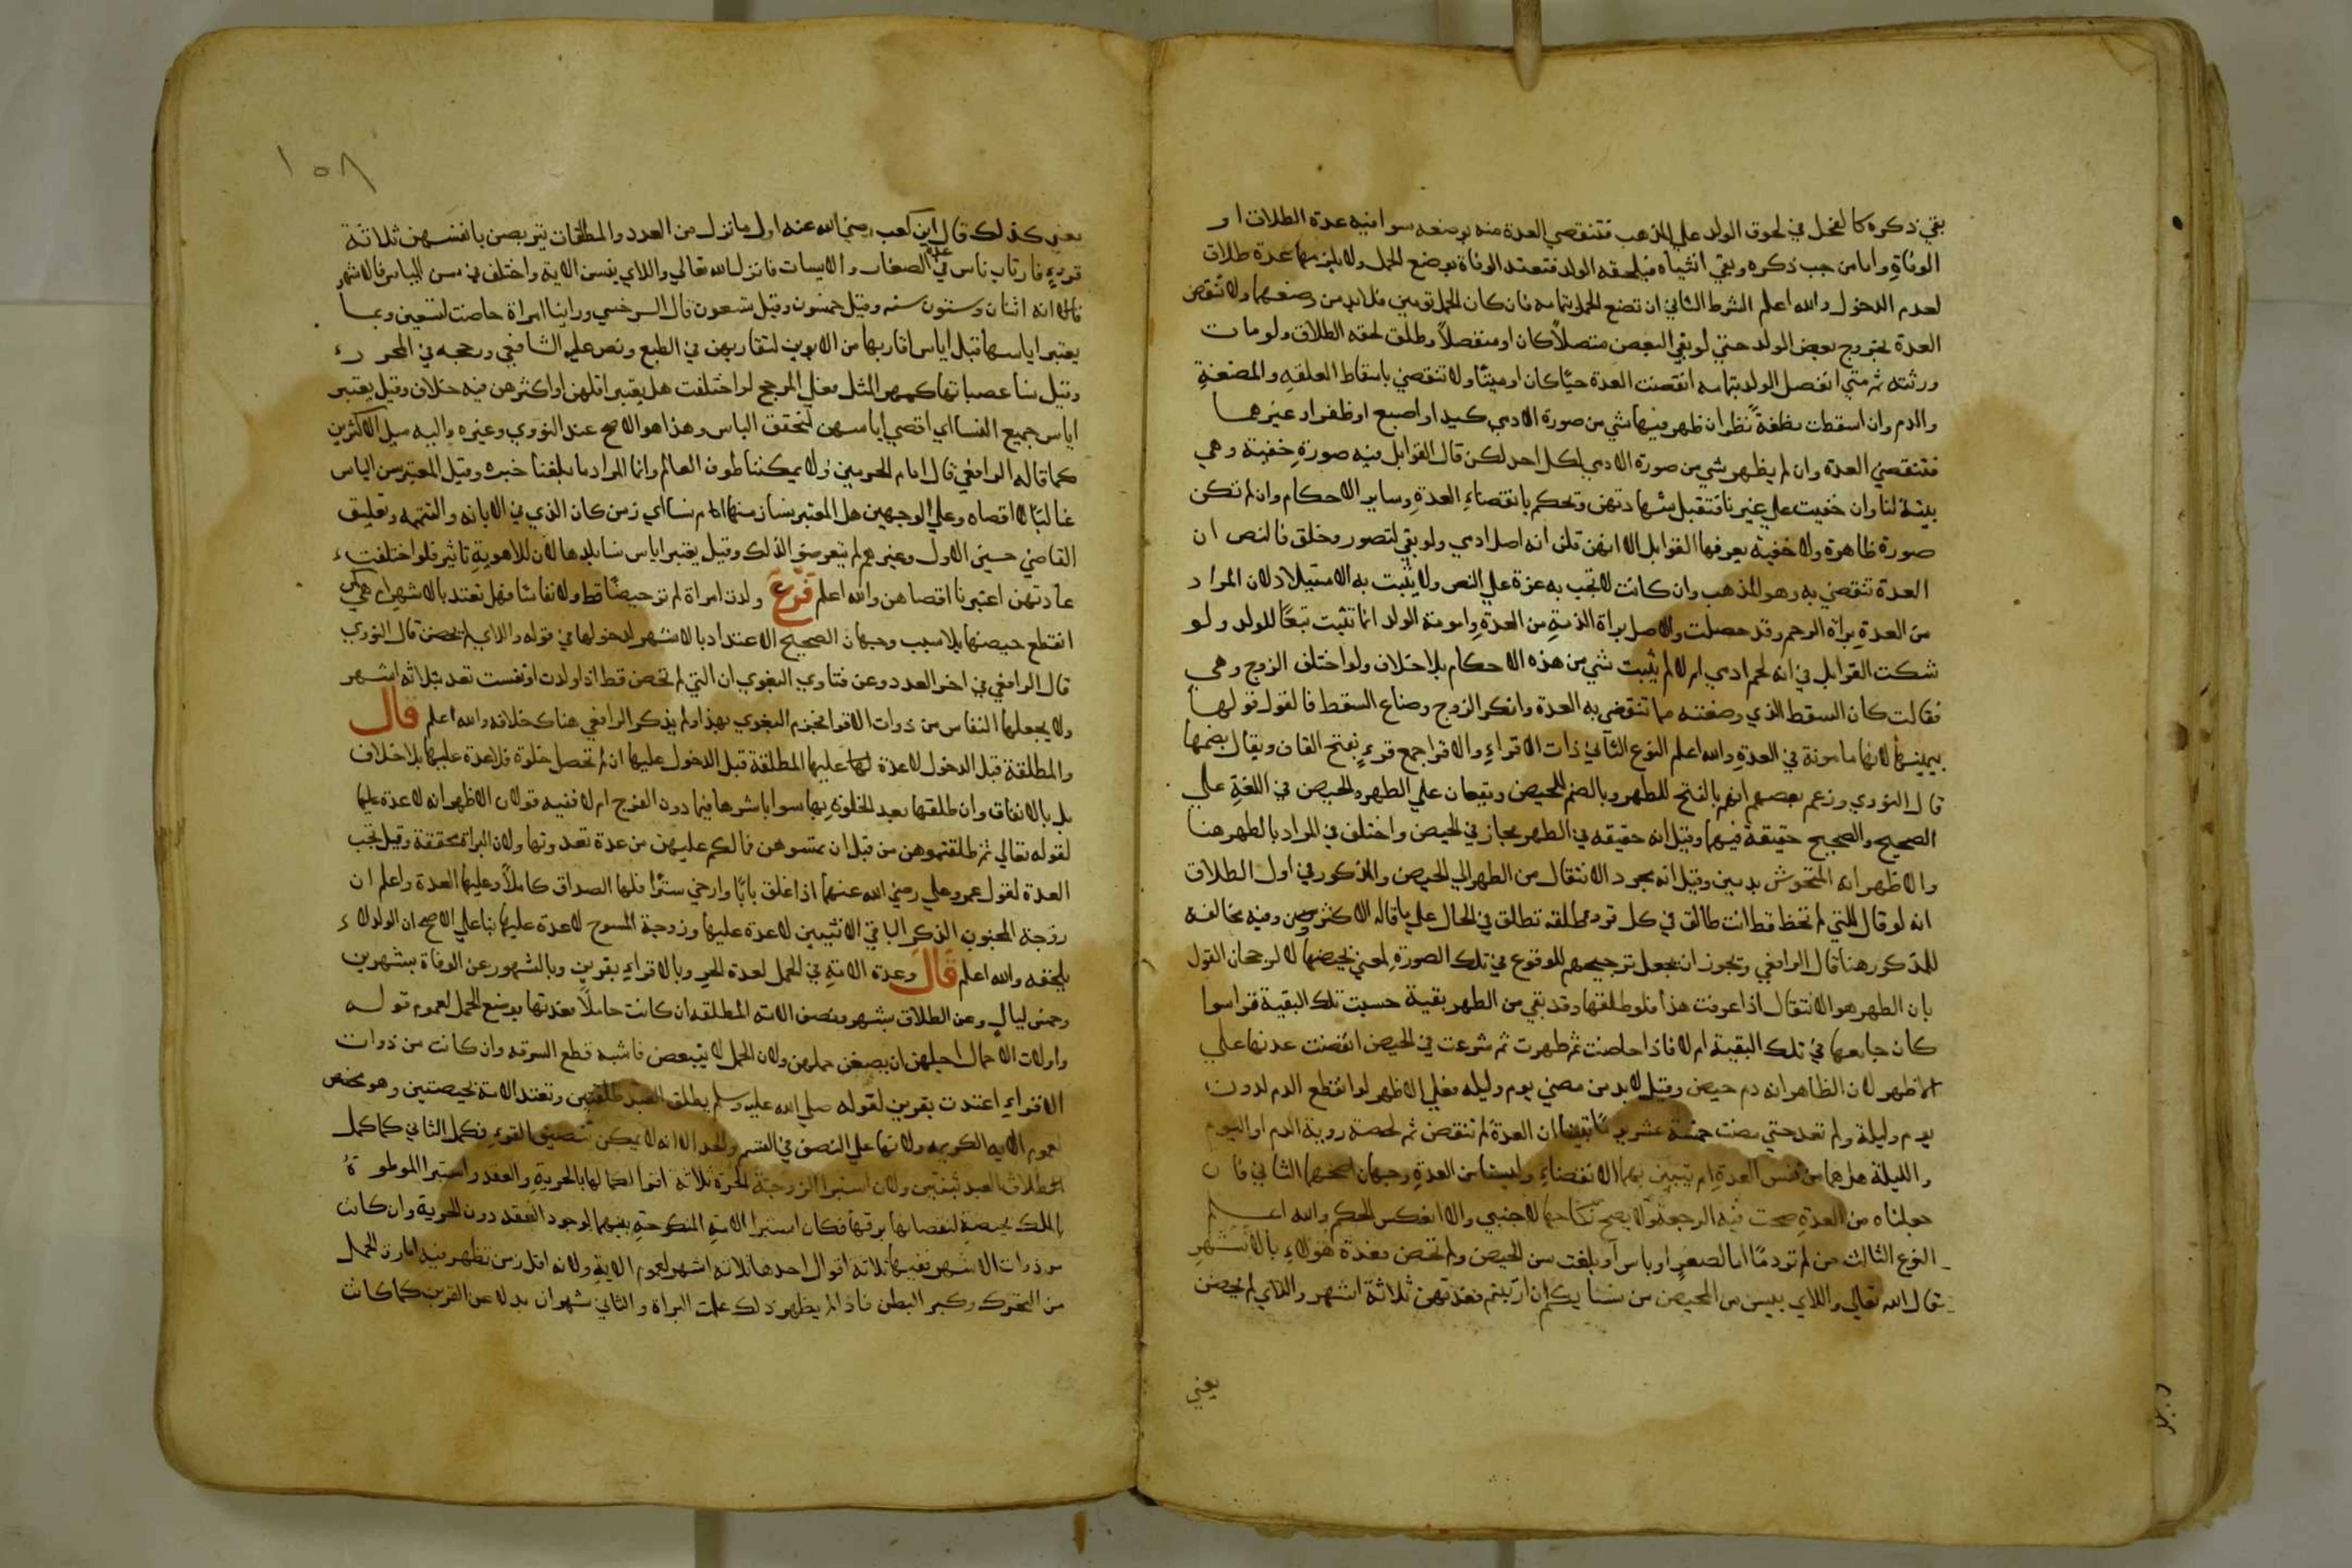 بقي ذكره كالفحل في لحوق الولد علي المذهب فتنقضي العدة منه بوضعه سوا فيه عدة الطلاق او
الوفاة واما من جب ذكره وبقي انثياه فيلحقه الولد فتعتد الوفاة بوضع الحمل ولا يلزمها عدة طلاق
لعدم الدخول والله اعلم الشرط الثاني ان تضع الحمل بتمامه فان كان الحمل توميين فلا بد من وضعهما ولا تنقضي
العدة بخروج بعض الولد حتي لو بقي البعض متصلاً كان او منفصلاً وطلق لحقه الطلاق ولو مات
ورثته ثم متي انفصل الولد بتمامه انقضت العدة حيًا كان او ميتًا ولا تنقضي باسقاط العلقه والمضغة
والدم وان اسقطت مضغة نظر ان ظهر فيها شي من صورة الادمي كيد او اصبع او ظفر او غيرهما
فتنقضي العدة وان لم يظهر شي من صورة الادمي لكل احد لكن قال القوابل فيه صورة خفية وهي
بينة لنا وان خفيت علي غيرنا فتقبل شهادتهن وتحكم بانقضاء العدة وساير الاحكام وان لم تكن
صورة ظاهرة ولا خفية يعرفها القوابل الا انهن قلن انه اصل ادمي ولو بقي لتصور وخلق فالنص ان
العدة تنقضي به وهو المذهب وان كانت لا تجب به غرة علي النص ولا يثبت به الاستيلاد لان المراد
من العدة براة الرحم وقد حصلت والاصل براة الذمة من العدة وامومة الولد انما تثبت تبعًا للولد ولو
شكت القوابل في انه لحم ادمي ام لا لم يثبت شي من هذه الاحكام بلا خلاف ولو اختلف الزوج وهي
فقالت كان السقط الذي وضعته مما تنقضي به العدة وانكر الزوج وضاع السقط فالقول قولها
بيمينها لانها مامونة في العدة والله اعلم النوع الثاني ذات الاقراء والاقرا جمع قرء بفتح القاف ويقال بضمها
قال النووي وزعم بعضهم انه بالفتح للطهر وبالضم للحيض ويقعان علي الطهر والحيض في اللغة علي
الصحيح والصحيح حقيقة فيهما وقيل انه حقيقه في الطهر مجاز في الحيض واختلف في المراد بالطهر هنا
والاظهر انه المحتوش بدمين وقيل انه مجرد الانتقال من الطهر الي الحيض والمذكور في اول الطلاق
انه لو قال للتي لم تحض قط انت طالق في كل قرء طلقه تطلق في الحال علي ما قاله الاكثرون وفيه مخالفة
للمذكور هنا قال الرافعي ويجوز ان يجعل ترجيحهم للوقوع في تلك الصورة لمعني يخصها لا لرجحان القول
بان الطهر هو الانتقال اذا عرفت هذا فلو طلقها وقد بقي من الطهر بقية حسبت تلك البقية قرا سوا
كان جامعها في تلك البقية ام لا فاذا حاضت ثم طهرت ثم شرعت في الحيض انقضت عدتها علي
الاظهر لان الظاهر انه دم حيض وقيل لا بد من مضي يوم وليله فعلي الاظهر لو انقطع الدم لدون
يوم وليلة ولم تعد حتي مضت خمسة عشر يومًا تبينا ان العدة لم تنقض ثم لحظة روية الدم او اليوم
والليلة هل هما من نفس العدة ام يتبين بهما الانقضاء وليستا من العدة وجهان اصحهما الثاني فان
جعلناه من العدة صحت فيه الرجعة ولا يصح نكاحها لاجنبي والا انعكس الحكم والله اعلم
النوع الثالث من لم تر دمًا اما لصغر او ياس او بلغت سن الحيض ولم تحض فعدة هولاء بالاشهر
قال الله تعالي واللاي ييسن من المحيض من نسايكم ان ارتبتم فعدتهن ثلاثة اشهر واللاي لم يحضن
يعني
١٥٨
يعني كذلك قال ابن كعب رضي الله عنه اول ما نزل من العدد والمطلقات يتربصن بانفسهن ثلاثة
قروء فارتاب ناس في عدة الصغار والايسات فانزل الله تعالي واللاي ييسن الاية واختلف في سن الياس فالاشهر
انه اثنان وستون سنه وقيل خمسون وقيل تسعون قال السرخسي وراينا امراة حاضت لتسعين وبما
يعتبر اياسها قيل اياس اقاربها من الابوين لتقاربهن في الطبع ونص عليه الشافعي ورجحه في المحرر
وقيل نسا عصباتها كمهر المثل فعلي المرجح لو اختلفت هل يعتبر اقلهن او اكثرهن فيه خلاف وقيل يعتبر
اياس جميع النسا اي اقصي اياسهن لتحقق الياس وهذا هو الاصح عند النووي وغيره واليه ميل الاكثرين
كما قاله الرافعي قال امام الحرمين ولا يمكننا طوف العالم وانما المراد ما بلغنا خبره وقيل المعتبر سن الياس
غالبًا لا اقصاه وعلي الوجهين هل المعتبر نسا زمنها ام نسا اي زمن كان الذي في الابانه والتتمه وتعليق
القاضي حسين الاول وغيرهم لم يتعرضو الذلك وقيل يعتبر اياس نسا بلدها لان للاهوية تاثير فلو اختلفت
عادتهن اعتبرنا اقصاهن والله اعلم فرع ولدت امراة لم تر حيضًا قط ولا نفاسًا فهل تعتد بالاشهر ام هي كمن
انقطع حيضها بلا سبب وجهان الصحيح الاعتداد بالاشهر لدخولها في قوله واللاي لم يحضن قال النووي
قال الرافعي في اخر العدد وعن فتاوي البغوي ان التي لم تحض قط اذا ولدت ونفست تعتد بثلاثة اشهر
ولا يجعلها النفاس من ذوات الاقرا فجزم البغوي بهذا ولم يذكر الرافعي هناك خلافه والله اعلم قال
والمطلقة قبل الدخول لا عدة لها عليها المطلقة قبل الدخول عليها ان لم تحصل خلوة فلا عدة عليها بلا خلاف
بل بالاتفاق وان طلقها بعد الخلوة بها سوا باشرها فيما دون الفرج ام لا ففيه قولان الاظهر انه لا عدة عليها
لقوله تعالي ثم طلقتموهن من قبل ان تمسوهن فما لكم عليهن من عدة تعتدونها ولان البراة محققة وقيل تجب
العدة لقول عمر وعلي رضي الله عنهما اذا اغلق بابًا وارخي سترًا فلها الصداق كاملاً وعليها العدة واعلم ان
زوجة المجبوب الذكر الباقي الانثيين لا عدة عليها وزوجة الممسوح لا عدة عليها بنا علي الاصح ان الولد لا
يلحقه والله اعلم قال وعدة الامة في الحمل لعدة الحر وبالاقراء بقرين وبالشهور عن الوفاة بشهرين
وخمس ليال وعن الطلاق بشهر ونصف الامة المطلقة ان كانت حاملاً فعدتها بوضع الحمل لعموم قوله
واولات الاحمال اجلهن ان يضعن حملهن ولان الحمل لا يتبعض فاشبه قطع السرقه وان كانت من ذوات
الاقراء اعتدت بقرين لقوله صلي الله عليه وسلم يطلق العبد طلقتين وتعتد الامة بحيضتين وهو مخصص
لعموم الاية الكريمه ولانها علي النصف في القسم والحد الا انه لا يمكن تنصيف القرء فكمل الثاني كما كمل
الطلاق العبد ثنتين ولان استبرا الزوجة الحرة ثلاثة اقرا لكمالها بالحرية والعقد واستبرا الموطوة
بالملك بحيضة لنقصانها برقها فكان استبرا الامة المنكوحة بينهما لوجود العقد دون الحرية وان كانت
من ذوات الاشهر ففيها ثلاثة اقوال احدها ثلاثة اشهر لعموم الاية ولانه اقل زمن تظهر فيه امارة الحمل
من التحرك وكبر البطن فاذا لم يظهر ذلك علمت البراة والثاني شهران بدلا عن القرين كما كانت